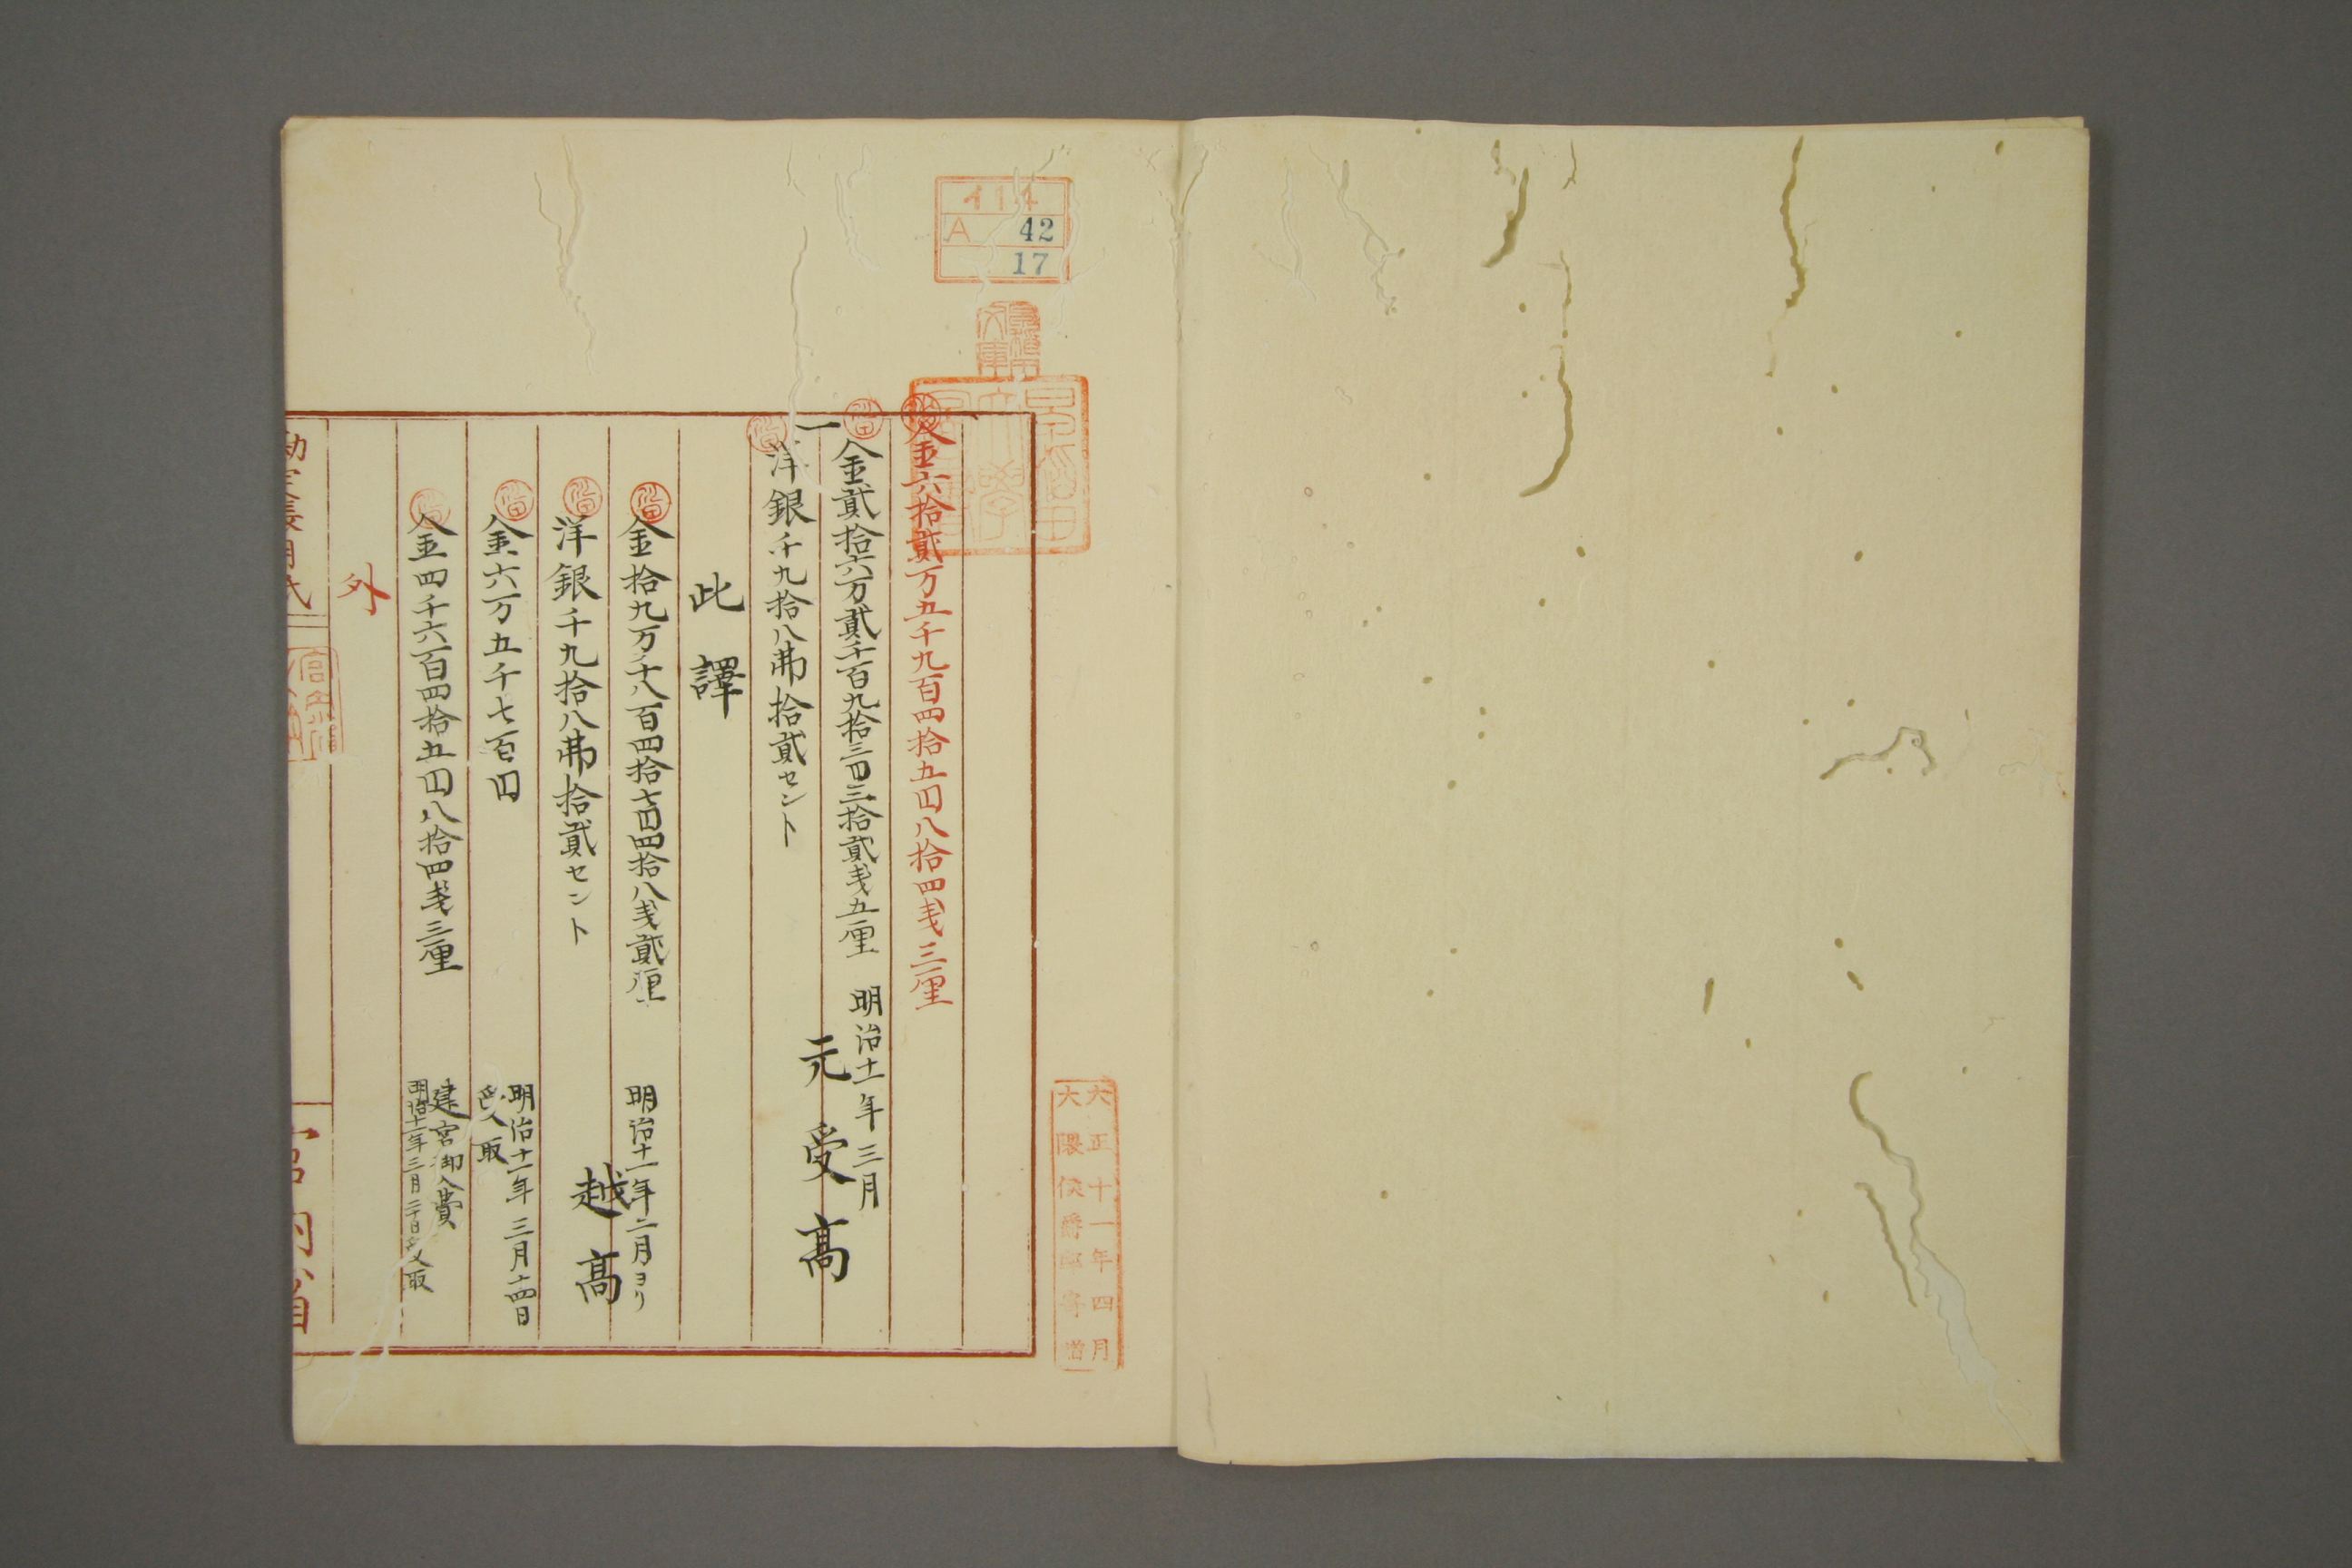 414
A 42
17
大正十一年四月
大隈侯爵家寄贈
金六拾貳万五千九百四拾五円八拾四戔三厘
一金貳拾六万貳千百九拾三円三拾貳戔五厘 明治十一年三月
洋銀千九拾八弗拾貳セント 元受高
此譯
金拾九万千八百四拾七円四拾八戔貳厘 明治十一年二月ヨリ
洋銀千九拾八弗拾貳セント 越高
金六万五千七百円 明治十一年三月十四日
受取
金四千六百四拾五円八拾四戔三厘 建宮御入費
明治十一年三月二十日受取
外
宮内省